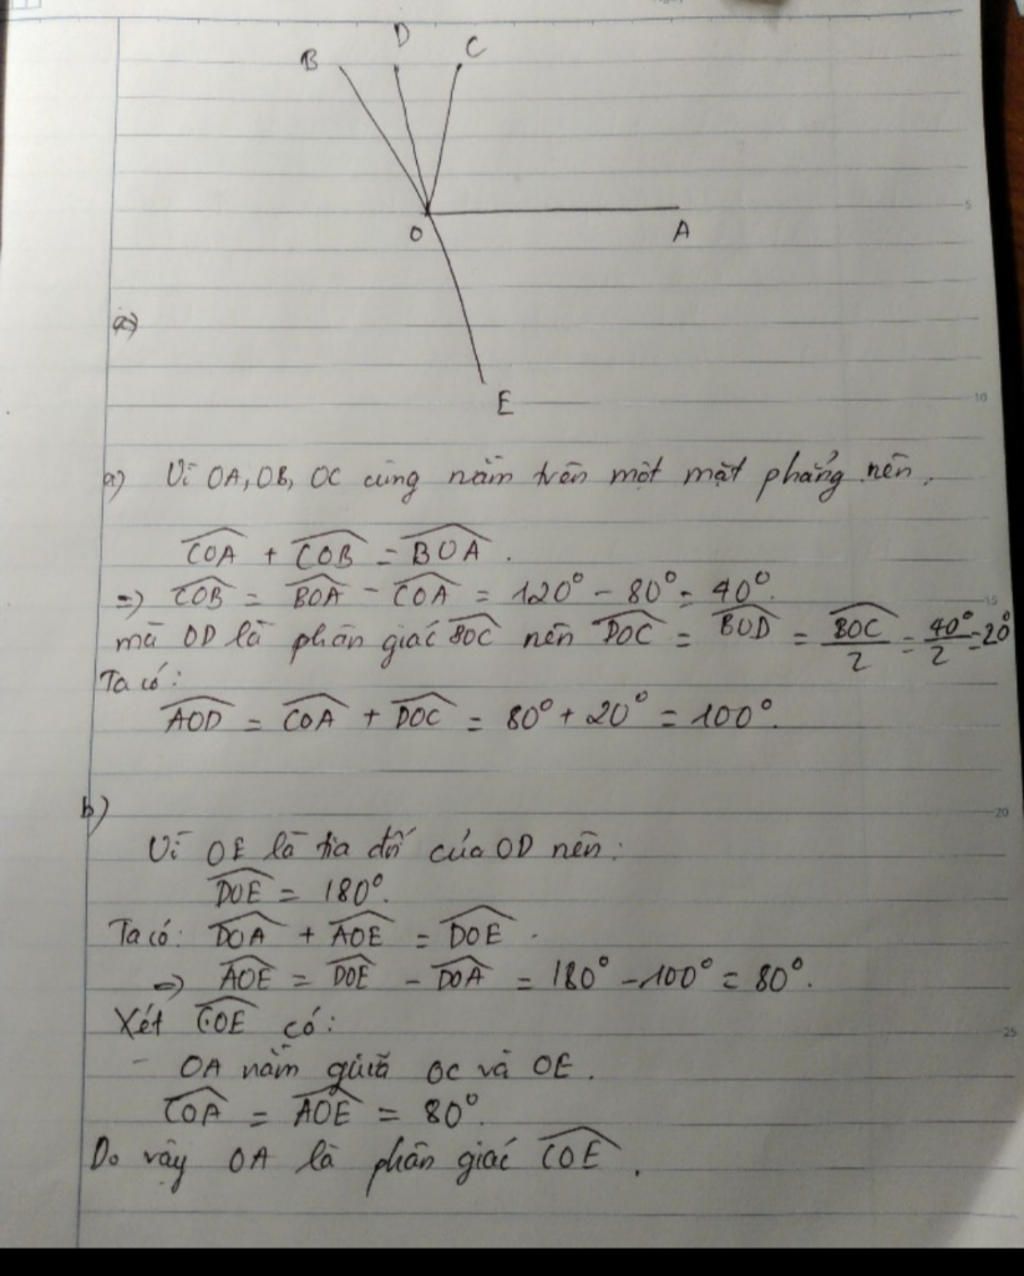 B D C
O A
E
a)
a) Vì OA, OB, OC cùng nằm trên một mặt phẳng nên.
COA + COB = BOA.
=) COB = BOA - COA = 120° - 80° = 40°.
mà OD là phân giác BOC nên DOC = BOD = BOC/2 = 40°/2 = 20°
Ta có:
AOD = COA + DOC = 80° + 20° = 100°.
b)
Vì OE là tia đối của OD nên:
DOE = 180°.
Ta có: DOA + AOE = DOE.
=) AOE = DOE - DOA = 180° - 100° = 80°.
Xét COE có:
- OA nằm giữa OC và OE.
COA = AOE = 80°.
Do vậy OA là phân giác COE.
5
10
15
20
25